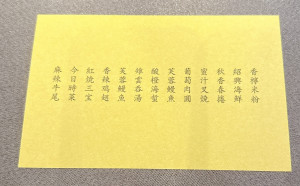 香檸米粉
紹興海鮮
秋香春捲
蜜汁叉燒
葡萄肉圓
芙蓉鰻魚
酸橙海蜇
雲吞湯
芙蓉鰻魚
香辣鸡翅
紅燒三宝
今日時菜
麻辣牛尾